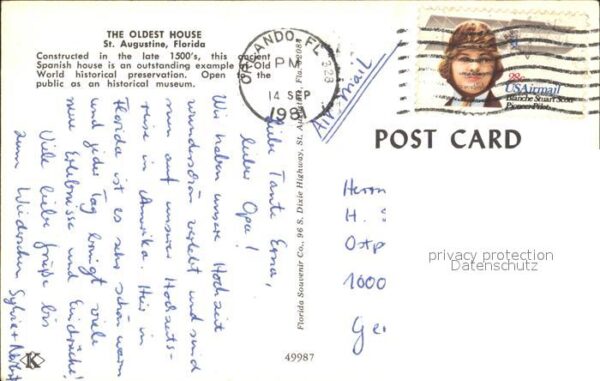 THE OLDEST HOUSE
St. Augustine, Florida
Constructed in the late 1500's, this ancient
Spanish house is an outstanding example of Old
World historical preservation. Open to the
public as an historical museum.
ORLANDO, FL 328
PM
14 SEP
198
Air mail
28c
USAirmail
Blanche Stuart Scott
Pioneer Pilot
POST CARD
Liebe Tante Erna,
lieber Opa!
Wir haben unsere Hochzeit
wunderschön verlebt und sind
nun auf unserer Hochzeits-
reise in Amerika. Hier in
Florida ist es sehr schön warm
und jeder Tag bringt viele
neue Erlebnisse und Eindrücke!
Viele liebe Grüße bis
zum Wiedersehen Sylvia +
Herrn
H.
Ostp
1000
Ge
privacy protection
Datenschutz
Florida Souvenir Co., 96 S. Dixie Highway, St. Augustine, Fla. 32084
49987
K